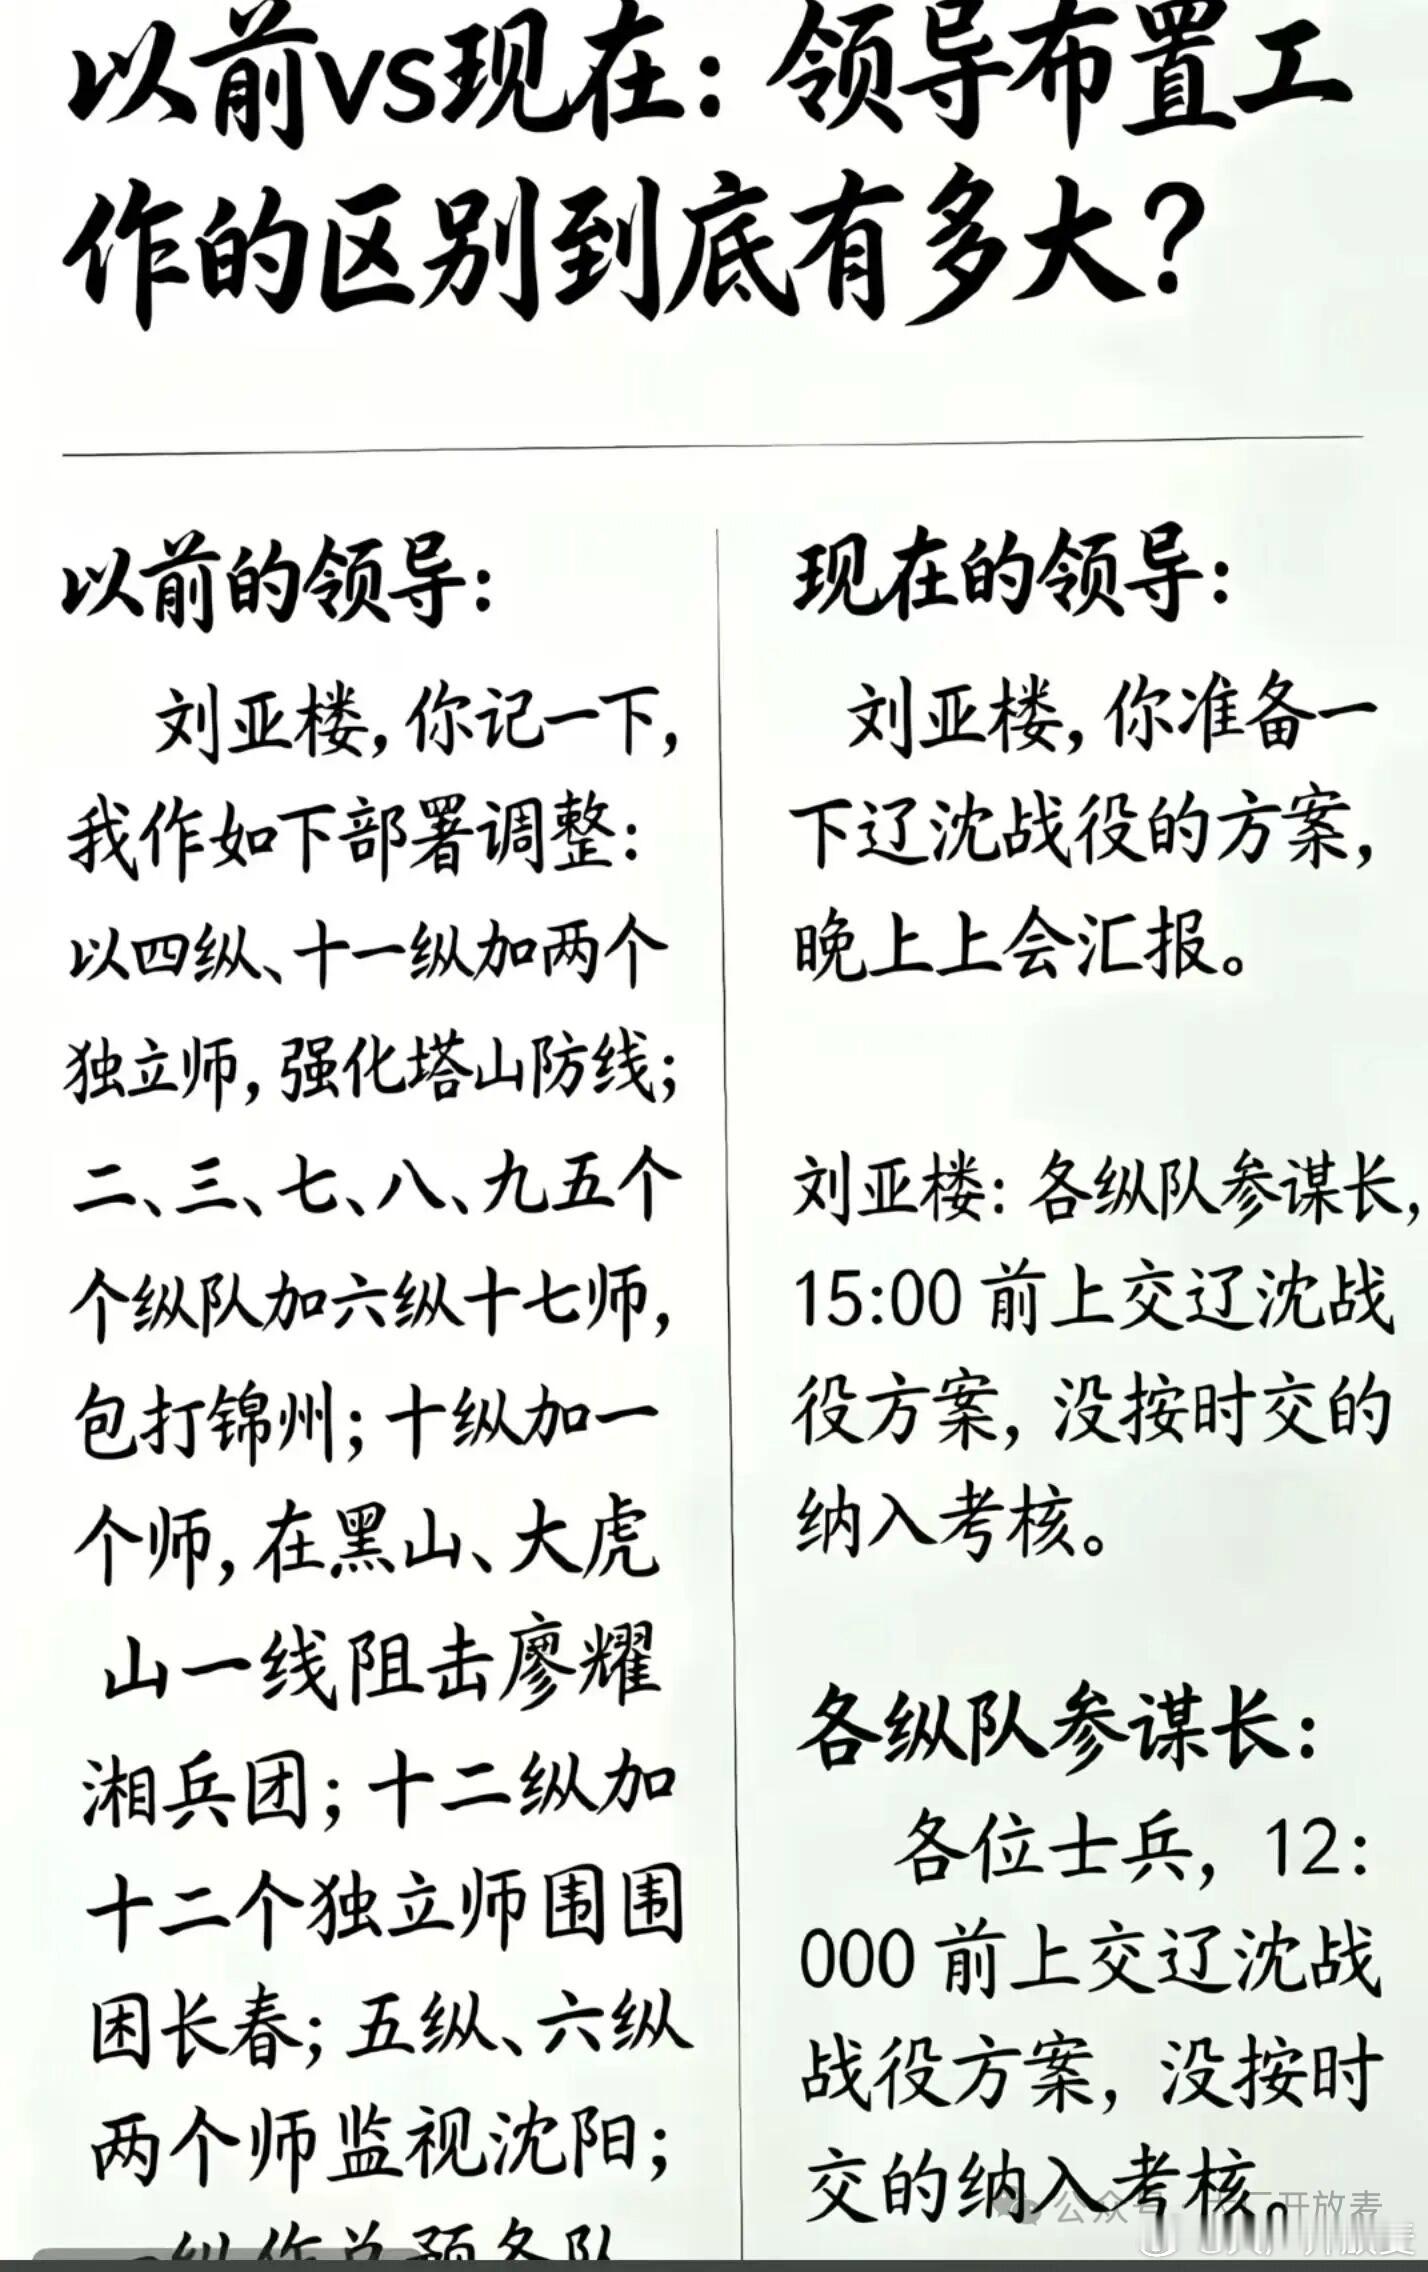 以前vs现在：领导布置工
作的区别到底有多大？
以前的领导：
刘亚楼，你记一下，
我作如下部署调整：
以四纵、十一纵加两个
独立师，强化塔山防线；
二、三、七、八、九五个
个纵队加六纵十七师，
包打锦州；十纵加一
个师，在黑山、大虎
山一线阻击廖耀
湘兵团；十二纵加
十二个独立师围围
困长春；五纵、六纵
两个师监视沈阳；
纵作总预备队
现在的领导：
刘亚楼，你准备一
下辽沈战役的方案，
晚上上会汇报。
刘亚楼：各纵队参谋长，
15:00 前上交辽沈战
役方案，没按时交的
纳入考核。
各纵队参谋长：
各位士兵，12：
000 前上交辽沈战
战役方案，没按时
交的纳入考核。
公众号 开放麦